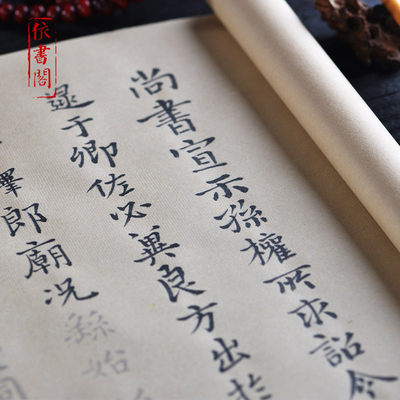 依書閣
尚書宣示孫權所求詔令
逮于卿佐必冀良方出於
擇郎廟況繇始